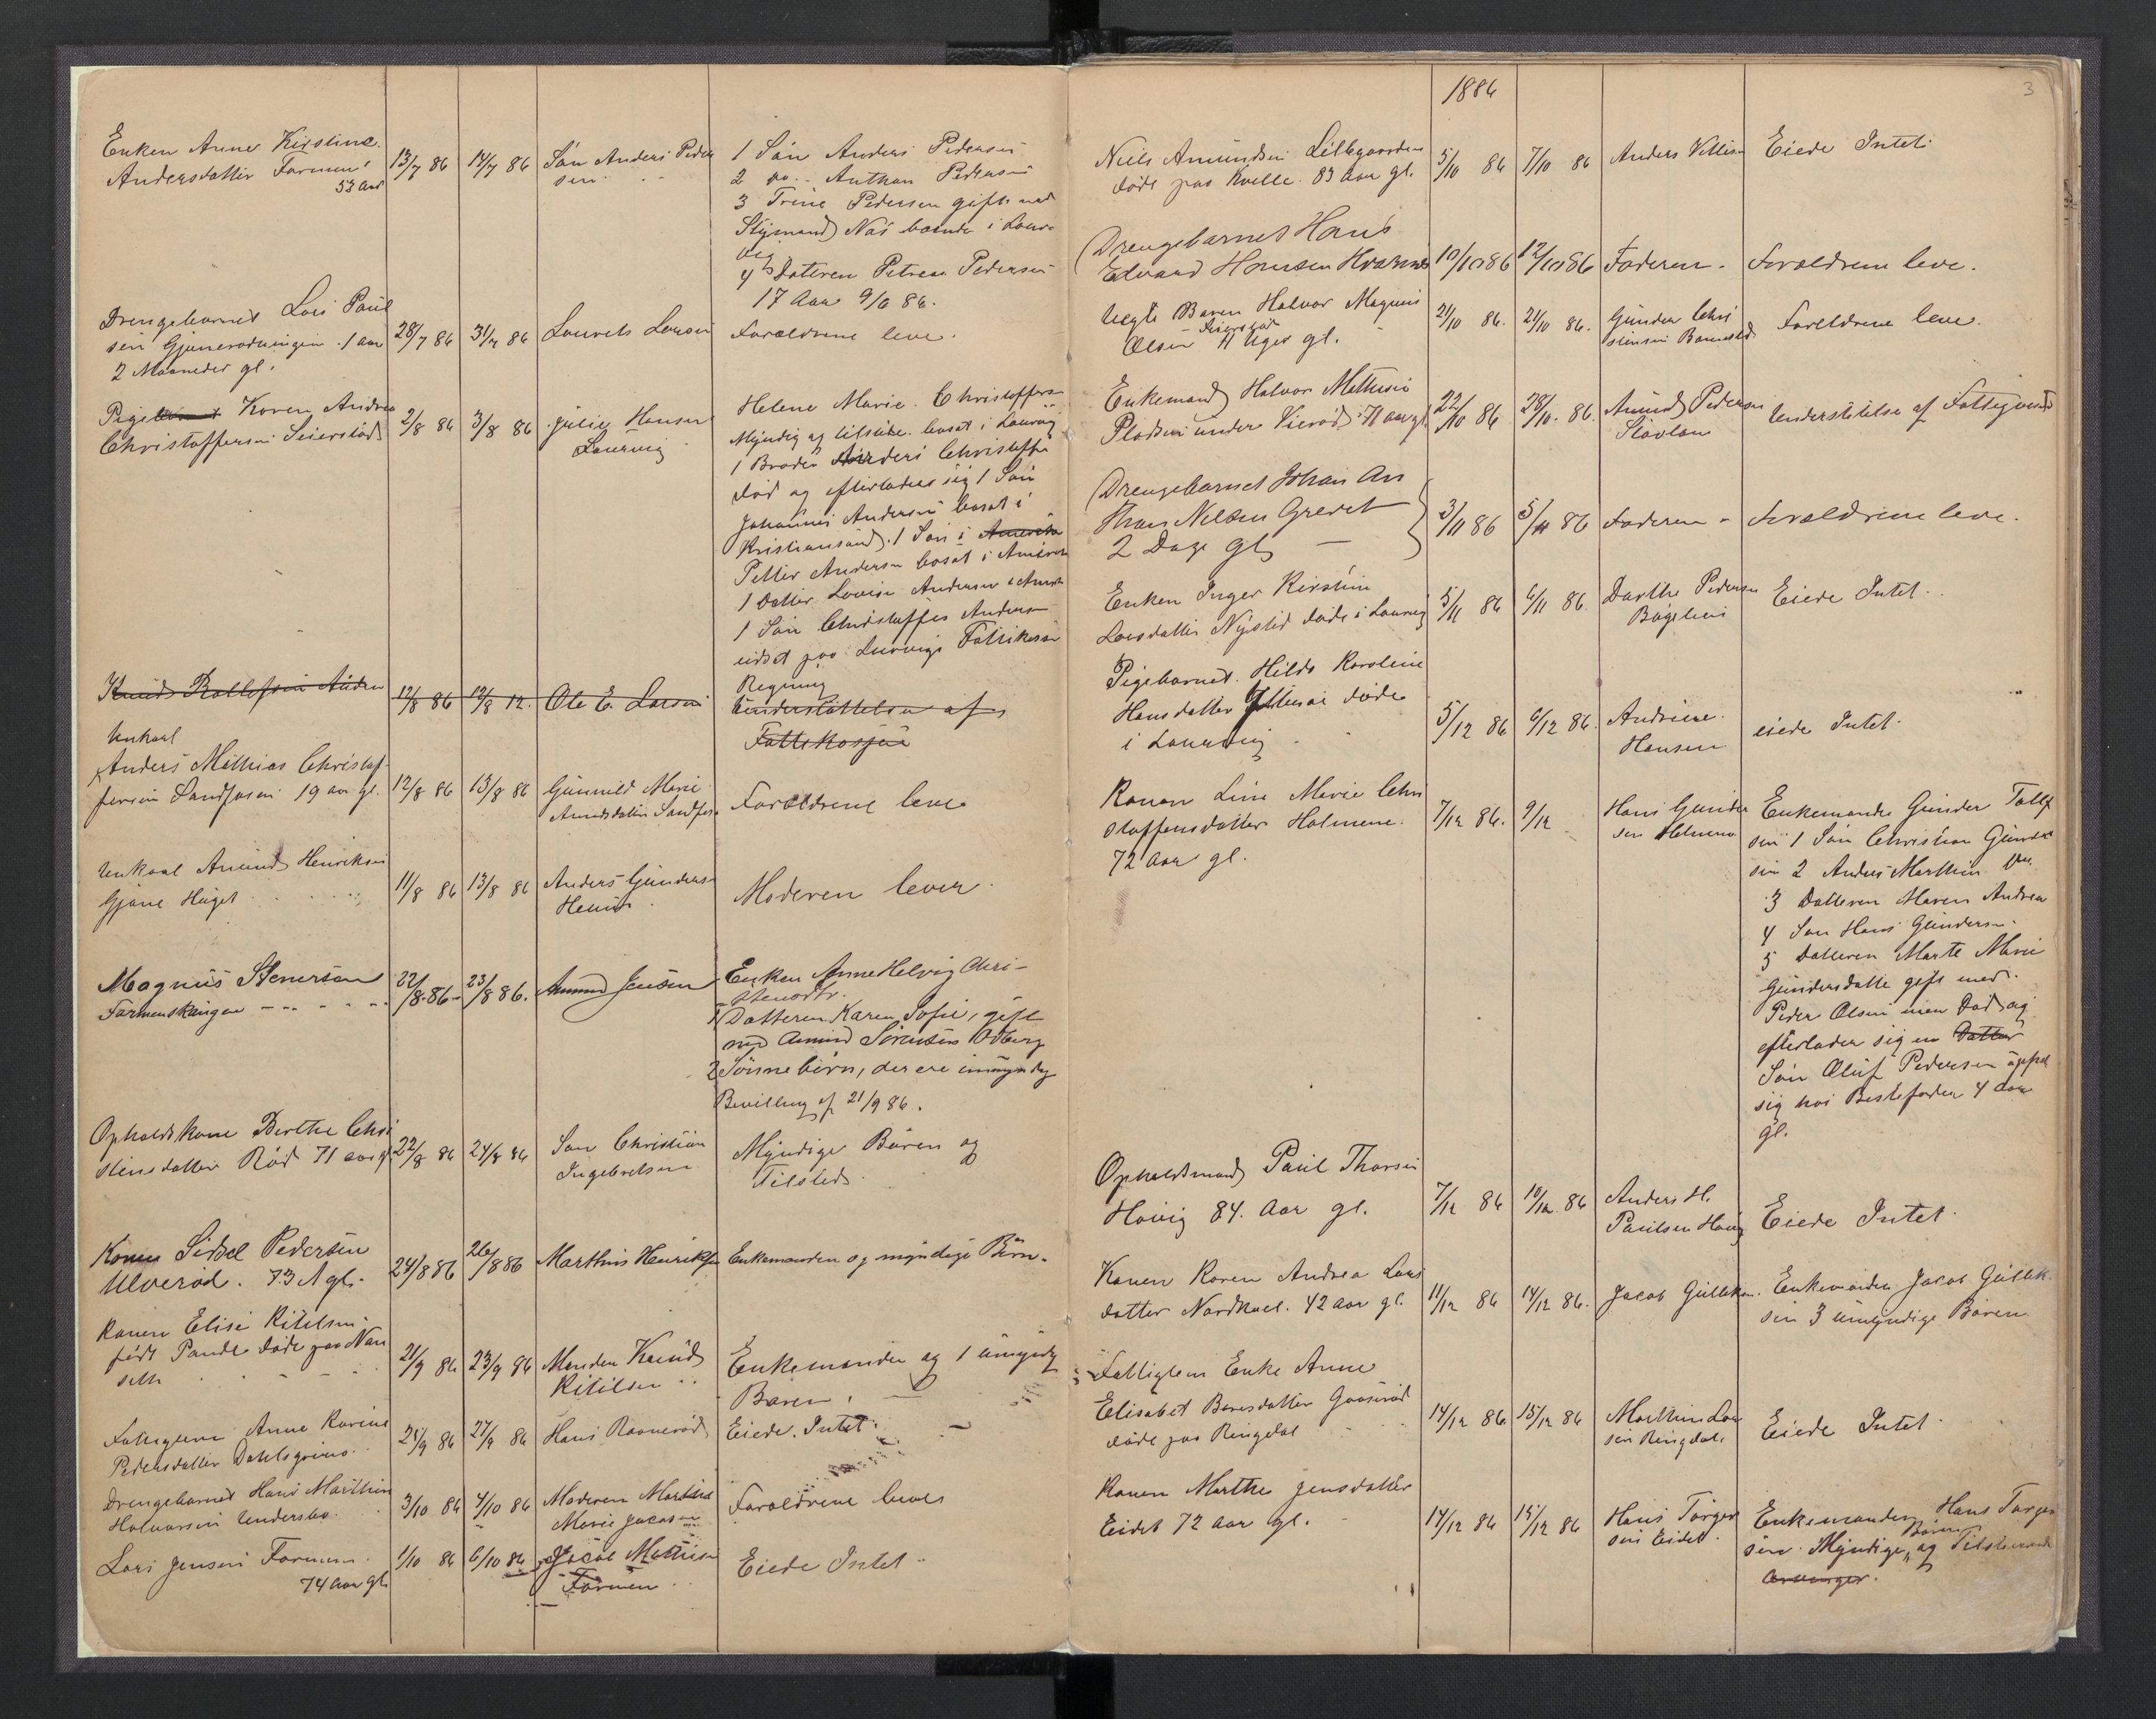 Enken Anne Kirstine
Andersdatter Farmen
53 Aar
13/7 86
14/7 86
Søn Anders Peder
sen
1 Søn Anders Pedersen
2 do. Anthon Pedersen
3 Trine Pedersen gift med
Styrmand Näs boende i Laur
vig
4 Datteren Petrea Pedersen
17 Aar 9/6 86.
Drengebarnet Lars Paul
sen 1 Aar
2 Maaneder gl.
28/7 86
31/7 86
Laurets Larsen
Foraldrene leve.
Pige Karen Andrea
Christoffersen Seierstad
2/8 86
3/8 86
Julius Hansen
Laurvig
Helene Marie Christoffers
Myndig og tilstede bosat i Laurvig
1 Broder Anders Christoffer
død og efterlades sig 1 Søn
Johannes Andersen bosat i
Kristiansand. 1 Søn i Amerika
Petter Andersen bosat i Amerik
1 Datter Lovise Andersen i Amrk
1 Søn Christoffer Anders
Regning
Knud Rollefsen
12/8 86
12/8 12.
Ole E. Larsen
Understøttelse af
Fattikassen
Unkarl
Anders Mathias Christof
fersen Sandfosen 19 aar gl.
12/8 86
13/8 86
Gunnild Marie
Amundsdatter Sandfos
Foraldrene leve
Unkaal Amund Henriksen
Gjøne Huget
11/8 86
13/8 86
Anders Gunders
Moderen lever
Magnus Stenersen
Farmenskaugen
22/8 86
23/8 86.
Amund Jensen
Enken Anne Helvig Chri-
stensdtr.
1 Datteren Karen Sofie, gift
med Amund Sørensen Odberg
2 Sønnebørn, der ere umyndig
Bevilling af 21/9 86.
Opholdskone Berthe Chri
stensdatter Rød 71 aar gl
22/8 86
24/8 86
Søn Christian
Ingebretsen
Myndige Børen og
Tilsteds
Konen Sidsel Pedersen
Ulverød. 73 A gl.
24/8 86
26/8 86
Marthin Henriksen
Enkemanden og myndige Børn.
Konen Elise Kitilsen
født Pande døde paa Nan
seth
21/9 86
23/9 86
Manden Knud
Kitilsen
Enkemanden og 1 umyndig
Baren.
Fatiglem Anne Karine
Pedersdatter
25/9 86
27/9 86
Hans Raanerød
Eiede Intet.
Drengebarnet Hans Marthin
Halvorsen Undersbo.
3/10 86
4/10 86
Moderen Marthea
Marie Jacobsen
Foraldrene lever
Lars Jensen Farmen
74 Aar gl
1/10 86
6/10 86
Jacob Mathisen
Farmen
Eiede Intet
1886
3
Niels Amundsen Lillegaarden
døde paa Kvelle 83 Aar gl.
5/10 86
7/10 86
Anders
Eiede Intet.
Drengebarnet Hans
Edvard Hansen Hvarnes
10/10 86
12/10 86
Faderen
Foraldrene leve.
Uegte Baren Halvor Magnus
Olsen Seierstad 11 Uger gl.
21/10 86.
21/10 86.
Gunder Chri
stensen
Foreldrene leve.
Enkemand Halvor Mathisen
Pladsen under Vierød 71 aar gl
22/10 86
28/10. 86.
Amund Pedersen
Understøtelse af Fattigvæsed
Drengebarnet Johan An
thon Nilsen Grevet
2 Dage gl
3/11 86
5/11 86
Faderen
Foraldrene leve.
Enken Inger Kirstine
Larsdatter Nysted døde i Laurvig
5/11 86
6/11 86.
Dorthe Pedersen
Bøgelien
Eiede Intet.
Pigebarnet Hilda Karoline
Hansdatter døde
i Laurvig
5/12 86
6/12 86.
Andrine
Hansen
eiede Intet
Konen Line Marie Chri
stoffersdatter Holmene.
72 Aar gl.
7/12 86.
9/12
Hans Gunder
sen Holmene
Enkemanden Gunder Tollef
sen 1 Søn Christian Gunder
sen 2 Anders Marthin do.
3 Datteren Maren Andrea
4 Søn Hans Gundersen
5 Datteren Marte Marie
Gundersdatte gift med
Peder Olsen men Død og
efterlader sig en Datter
Søn Oluf Pedersen opho
sig hos Bestefader 4 Aar
gl.
Opholdsmand Paul Thorsen
Hovig 84. Aar gl.
7/12 86
10/12 86
Anders H.
Paulsen Hovig
Eiede Intet
Konen Karen Andrea Lars
datter Nordkvel. 42 Aar gl.
11/12 86
14/12 86.
Jacob Gulliksen.
Enkemanden Jacob Gullik
sen 3 umyndige Børen
Fattiglem Enke Anne
Elisabet
døde paa Ringdal
14/12 86
15/12 86
Marthin Lar
sen Ringdal.
Eiede Intet
Konen Marthe Jensdatter
Eidet 72 Aar gl.
14/12 86
15/12 86
Hans Torger
sen Eidet
Enkemanden Hans Torger
sen. Myndige Børen og Tilsteværende
Arvinger.